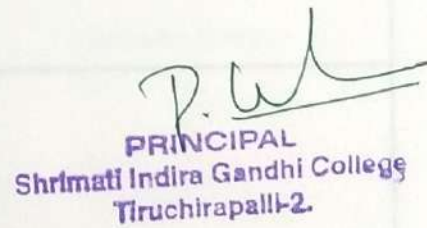 PRINCIPAL
Shrimati Indira Gandhi College
Tiruchirapalli-2.